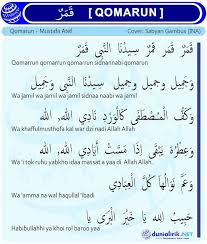 قَمَرٌ [ QOMARUN ]
Qomarun - Mustafa Atef Cover: Sabyan Gambus (INA)
قَمَرٌ قَمَرٌ قَمَرٌ سِيدْنَا النَّبِي قَمَرٌ
Qomarun qomarun qomarun sidnannabi qomarun
وَجَمِيل وَجَمِيل وَجَمِيل سِيدْنَا النَّبِي وَجَمِيل
Wa jamil wa jamil wa jamil sidnaa nabi wa jamil
وَكَفُّ الْمُصْطَفَى كَالْوَرْدِ نَادِي
Wa khaffulmusthofa kal war dzi nadi Allah Allah
وَعِطْرُهَا يَبْقَى إِذَا مَسَّتْ أَيَادِي
Wa 'i tok ruhu yabkho idaa massat a yaa di Allah Allah
وَعَمَّ نَوَالُهَا كُلَّ الْعِبَادِ
Wa 'amma na wal haqullal 'ibadi
حَبِيبُ اللهِ يَا خَيْرَ الْبَرَايَا
Habibullahhi ya khoi rol baroo yaa
dunialirik.NET